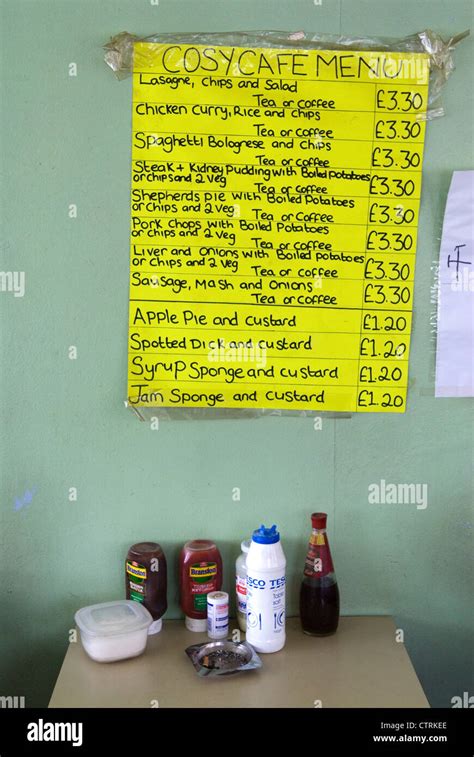 COSYCAFE MENU
Lasagne, chips and Salad
Tea or coffee £3.30
Chicken Curry, Rice and chips
Tea or coffee £3.30
Spaghetti Bolognese and chips
Tea or coffee £3.30
Steak + Kidney Pudding with Boiled Potatoes
or chips and 2 veg Tea or coffee £3.30
Shepherds Pie with Boiled Potatoes
or chips and 2 veg Tea or coffee £3.30
Pork Chops with Boiled Potatoes
or chips and 2 veg Tea or coffee £3.30
Liver and Onions with Boiled Potatoes
or chips and 2 veg Tea or coffee £3.30
Sausage, Mash and Onions
Tea or coffee £3.30
Apple Pie and custard £1.20
Spotted Dick and custard £1.20
Syrup Sponge and custard £1.20
Jam Sponge and custard £1.20
Branston
Branston
TESCO
Table
salt
alamy
Image ID: CTRKEE
www.alamy.com